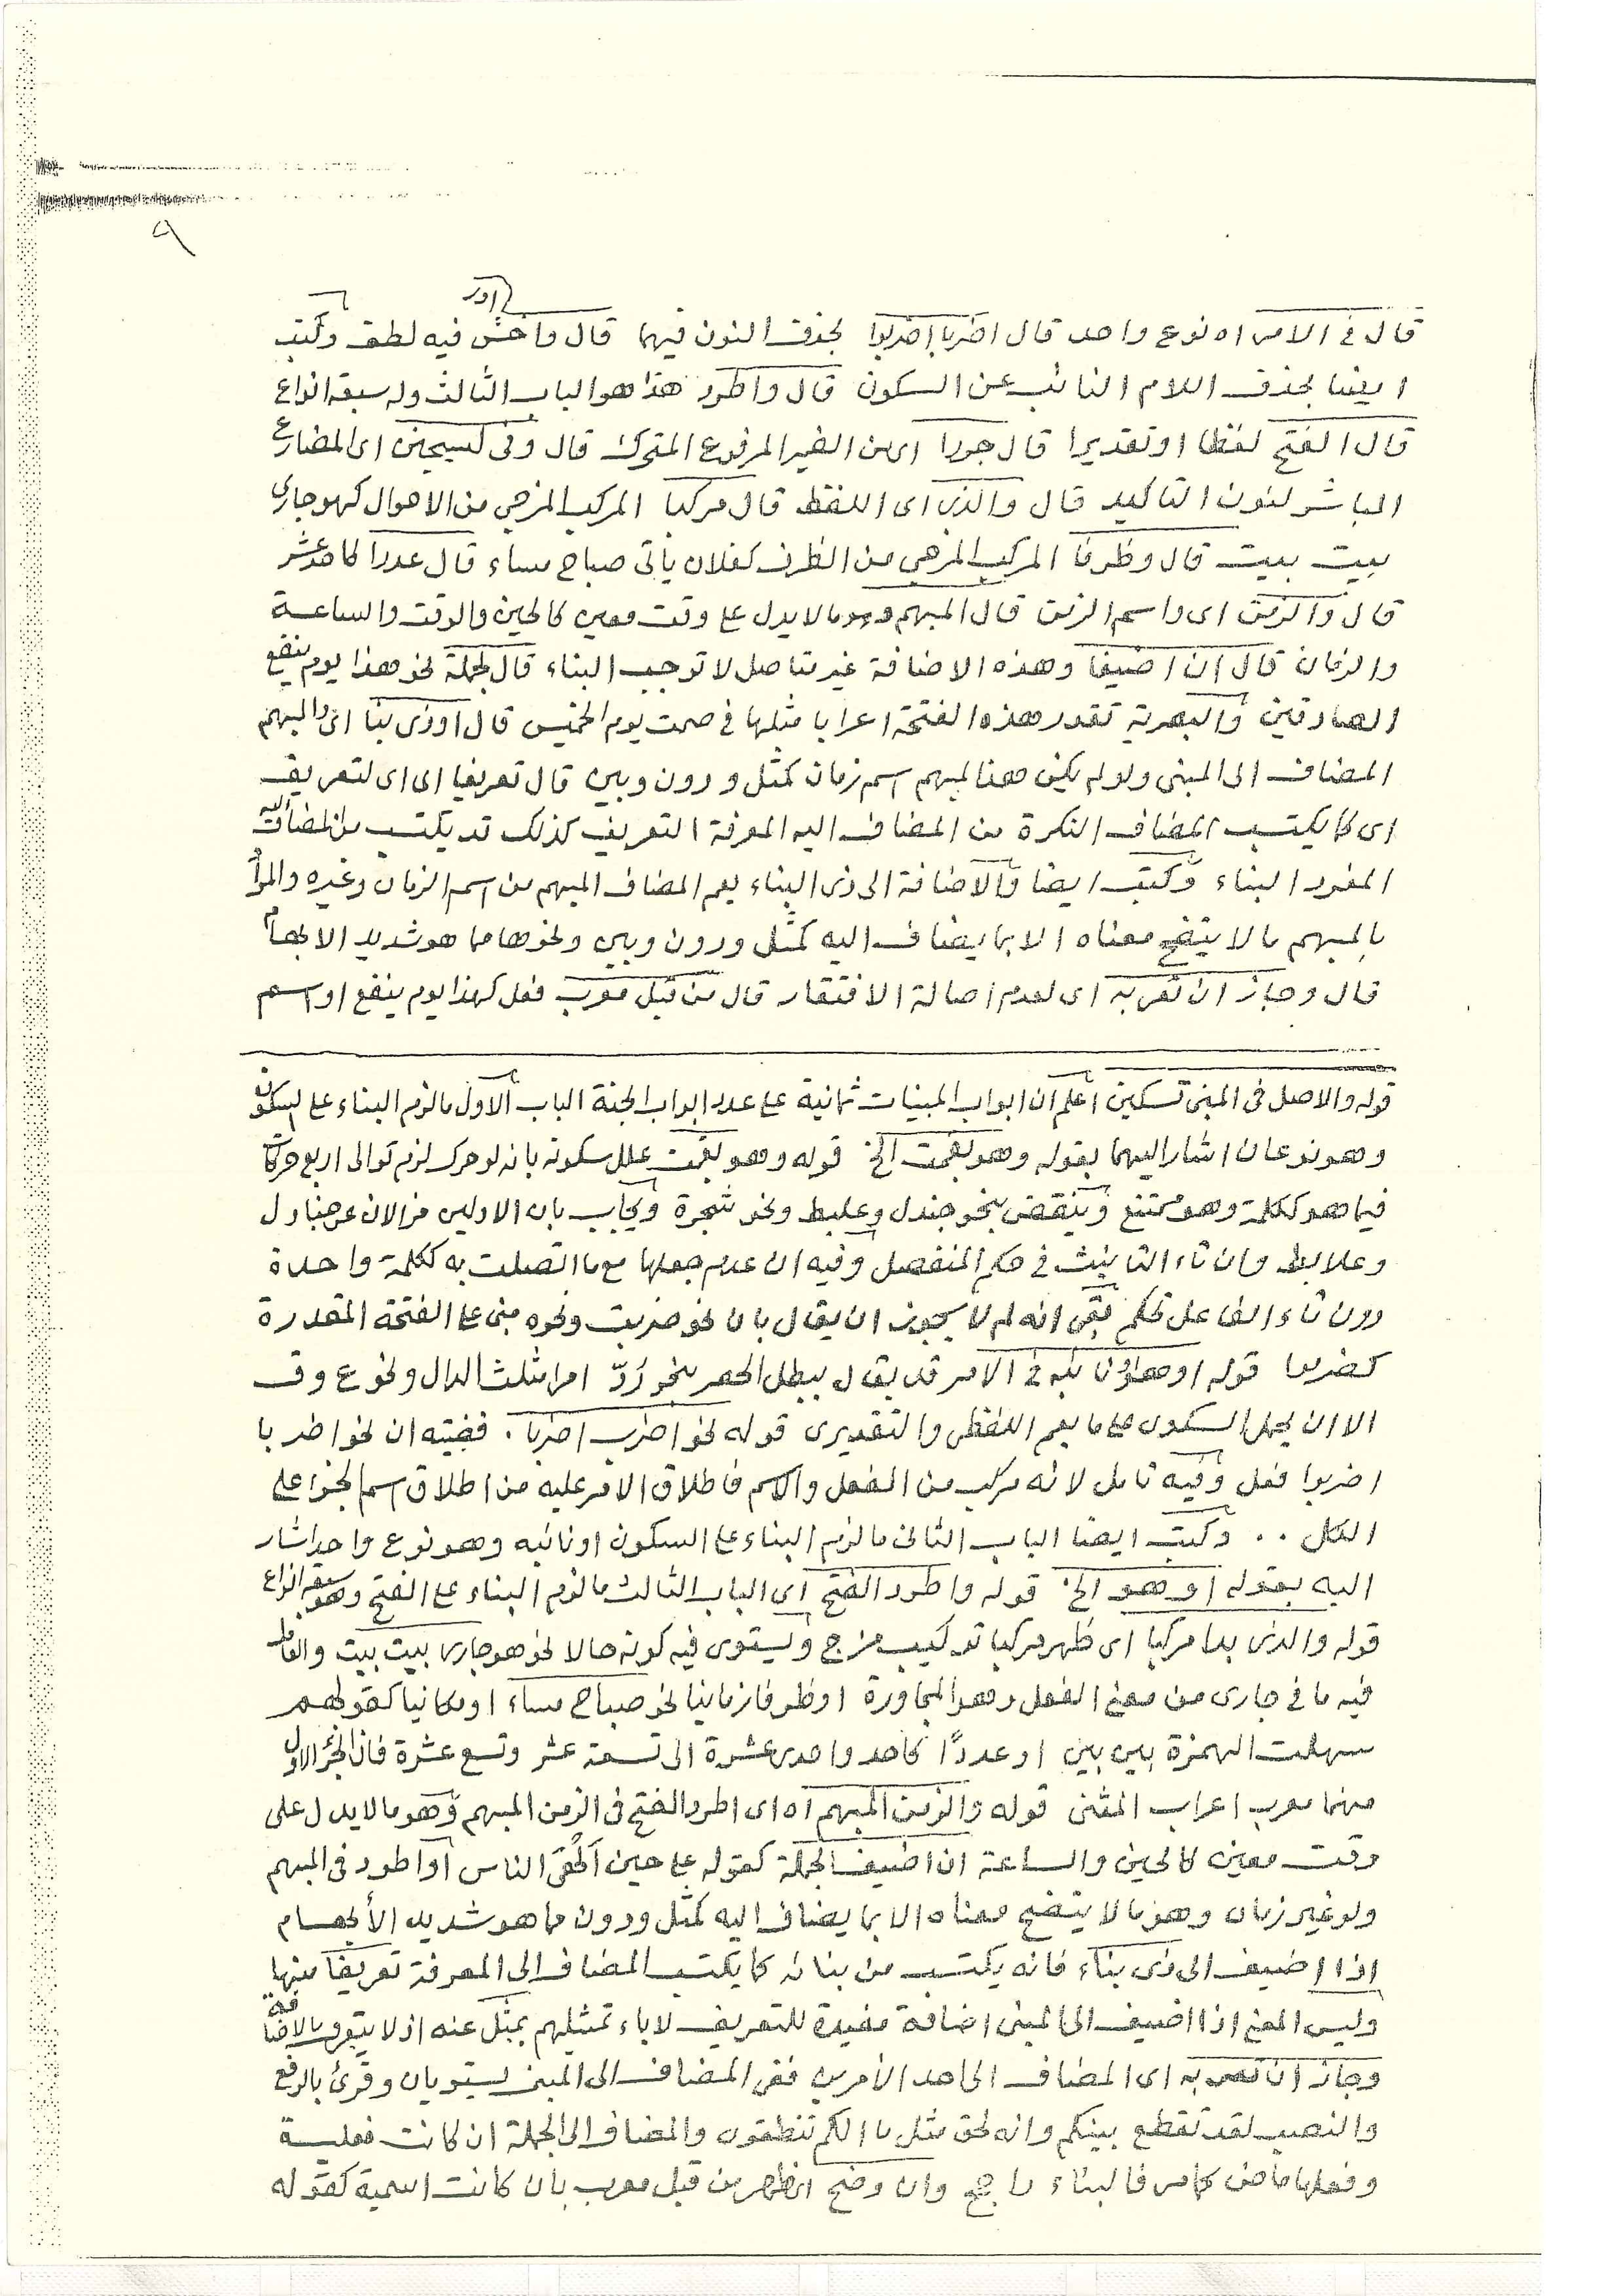 ٩
اور
قال في الامر اه نوع واحد قال اضربا اضربوا بحذف النون فيهما قال واخش فيه لطف وكتب
ايضا بحذف اللام النائب عن السكون قال واطرد هذا هو الباب الثالث وله سبعة انواع
قال الفتح لفظا او تقديرا قال جردا اى من الضمير المرفوع المتحرك قال وفى ليسجنن اى المضارع
المباشر لنون التاكيد قال والذى اى اللفظ قال مركبا المركب المزجى من الاحوال كهو جارى
بيت بيت قال وظرفا المركب المزجى من الظرف كفلان يأتى صباح مساء قال عددا كاحد عشر
قال والزمن اى واسم الزمن قال المبهم وهو ما لا يدل على وقت معين كالحين والوقت والساعة
والزمان قال ان اضيفا وهذه الاضافة غير متاصل لا توجب البناء قال لجملة نحو هذا يوم ينفع
الصادقين والبصرية تقدر هذه الفتحة اعرابا مثلها في صمت يوم الخميس قال او ذى بنا اى والمبهم
المضاف الى المبنى ولو لم يكن هذا المبهم اسم زمان كمثل ودون وبين قال تعريفا اى اى لتعريف
اى كما يكتسب المضاف النكرة من المضاف اليه المعرفة التعريف كذلك قد يكتسب من المضاف اليه
المفرد البناء وكتب ايضا والاضافة الى ذى البناء يعم المضاف المبهم من اسم الزمان وغيره والمراد
بالمبهم ما لا يتضح معناه الا بما يضاف اليه كمثل ودون وبين ونحوها مما هو شديد الابهام
قال وجاز ان تعربه اى لعدم اصالة الافتقار قال من قبل معرب فعل كهذا يوم ينفع او اسم
قوله والاصل فى المبنى تسكين اعلم ان ابواب المبنيات ثمانية على عدد ابواب الجنة الباب الاول ما لزم البناء على السكون
وهو نوعان اشار اليهما بقوله وهو بقمت الخ قوله وهو بقمت علل سكونه بانه لو حرك لزم توالى اربع حركات
فيما هو ككلمة وهو ممتنع وينتقض بنحو جندل وعلبط ونحو شجرة ويجاب بان الاولين فرعان عن جنادل
وعلابط وان تاء التانيث فى حكم المنفصل وفيه ان عدم جعلها مع ما اتصلت به ككلمة واحدة
دون تاء الفاعل تحكم بقى انه لم لا يجوز ان يقال بان نحو ضربت ونحوه مبنى على الفتحة المقدرة
كضربوا قوله او هو او نائبه فى الامر قد يقال يبطل الحصر بنحو رُدّ امرا مثلث الدال ونحو ع وق
الا ان يحمل السكون على ما يعم اللفظى والتقديرى قوله نحو اضرب اضربا . قضيته ان نحو اضربا
اضربوا فعل وفيه تامل لانه مركب من الفعل والاسم فاطلاق الامر عليه من اطلاق اسم الجزء على
الكل .. وكتب ايضا الباب الثانى ما لزم البناء على السكون او نائبه وهو نوع واحد اشار
اليه بقوله او هو الخ قوله واطرد الفتح اى الباب الثالث ما لزم البناء على الفتح وهو سبعة انواع
قوله والذى بدا مركبا اى ظهر مركبا تركيب مزج ويستوى فيه كونه حالا نحو هو جارى بيت بيت والعامل
فيه ما فى جارى من معنى الفعل وهو المجاورة او ظرفا زمانيا نحو صباح مساء او مكانيا كقولهم
سهلت الهمزة بين بين او عددًا كاحد واحدى عشرة الى تسعة عشر وتسع عشرة فان الجزء الاول
منهما معرب اعراب المثنى قوله والزمن المبهم اه اى اطرد الفتح فى الزمن المبهم وهو ما لا يدل على
وقت معين كالحين والساعة ان اضيف لجملة كقوله على حين الهى الناس او اطرد فى المبهم
ولو غير زمان وهو ما لا يتضح معناه الا بما يضاف اليه كمثل ودون مما هو شديد الأبهام
اذا اضيف الى ذى بناء فانه يكتسب من بنائه كما يكتسب المضاف الى المعرفة تعريفا منها
وليس المعنى اذا اضيف الى المبنى اضافة مفيدة للتعريف لاباء تمثيلهم بمثل عنه اذ لا يتعرف بالاضافة
وجاز ان تعربه اى المضاف الى احد الامرين ففى المضاف الى المبنى يستويان وقرئ بالرفع
والنصب لقد تقطع بينكم وانه لحق مثل ما انكم تنطقون والمضاف الى الجملة ان كانت فعلية
وفعلها ماض كما مر فالبناء راجح وان وضح اظهر من قبل معرب بان كانت اسمية كقوله